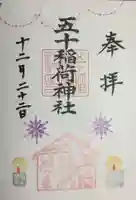 奉拝
五十稲荷神社
十二月二十二日